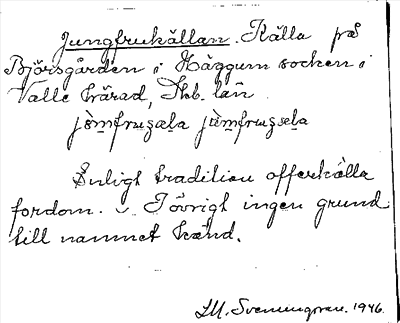 Jungfrukällan. Källa på
Björsgården i Häggum socken i
Valle härad, Skb. län
Enligt tradition offerkälla
fordom. – I övrigt ingen grund
till namnet känd.
1946.